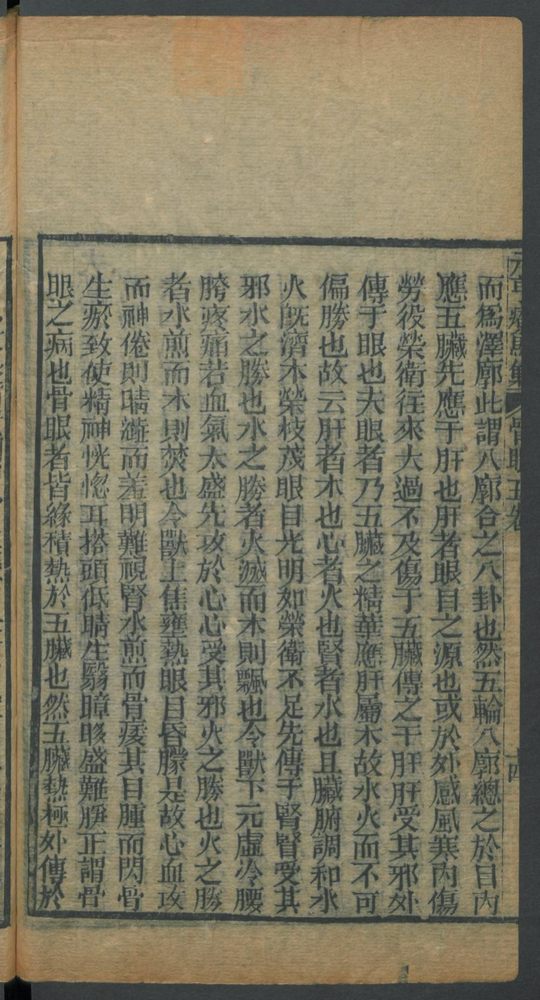 而為澤廓此謂八廓合之八卦也然五輪八廓總之於目內
應五臟先應于肝也肝者眼目之源也或於外感風寒內傷
勞役榮衛往來大過不及傷于五臟傳之于肝肝受其邪外
傳于眼也夫眼者乃五臟之精華應肝屬木故水火而不可
偏勝也故云肝者木也心者火也腎者水也且臟腑調和水
火既濟木榮枝茂眼目光明如榮衛不足先傳于腎腎受其
邪水之勝也水之勝者火滅而木則飄也令獸下元虛冷腰
胯疼痛若血氣太盛先攻於心心受其邪火之勝也火之勝
者水煎而木則焚也令獸上焦壅熱眼目昏朦是故心血攻
而神倦則睛澁而羞明難視腎水煎而骨痿其目腫而閃骨
生瘀致使精神恍惚耳搭頭低睛生翳暲眵盛難睜正謂骨
眼之病也骨眼者皆緣積熱於五臟也然五臟熱極外傳於
骨眼五卷
十四